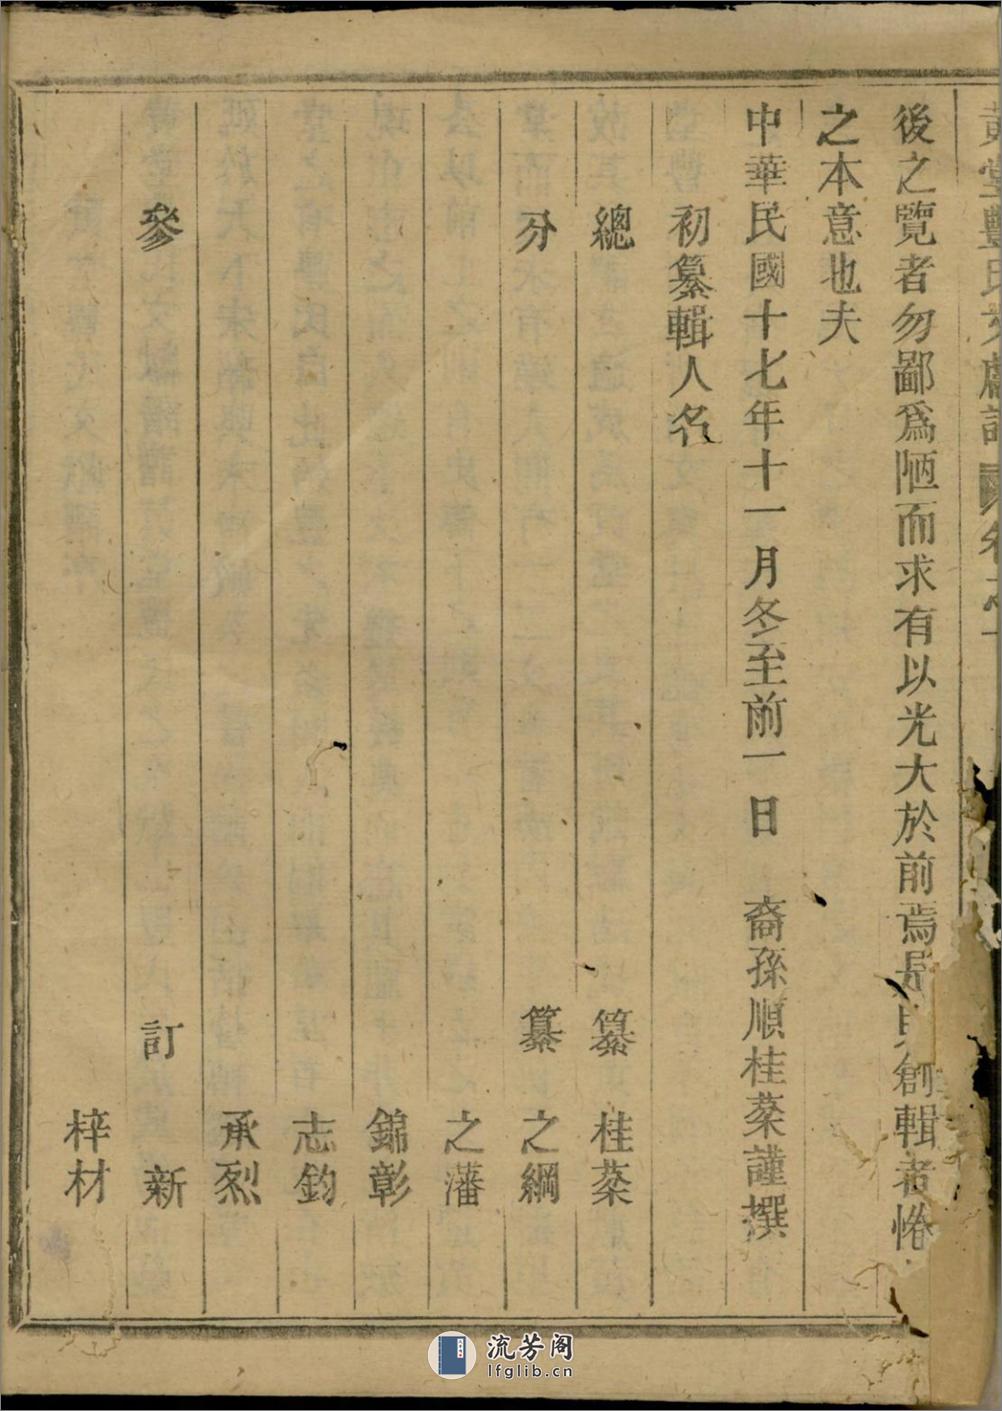 黃堂豐氏文獻譜
後之覽者勿鄙爲陋而求有以光大於前焉是則創輯者惓
之本意也夫
中華民國十七年十一月冬至前一日 裔孫順桂棻謹撰
初纂輯人名
總 纂 桂棻
分 纂 之綱
之藩
錦彰
志鈞
承烈
參 訂 新
梓材
流芳阁
lfglib.cn